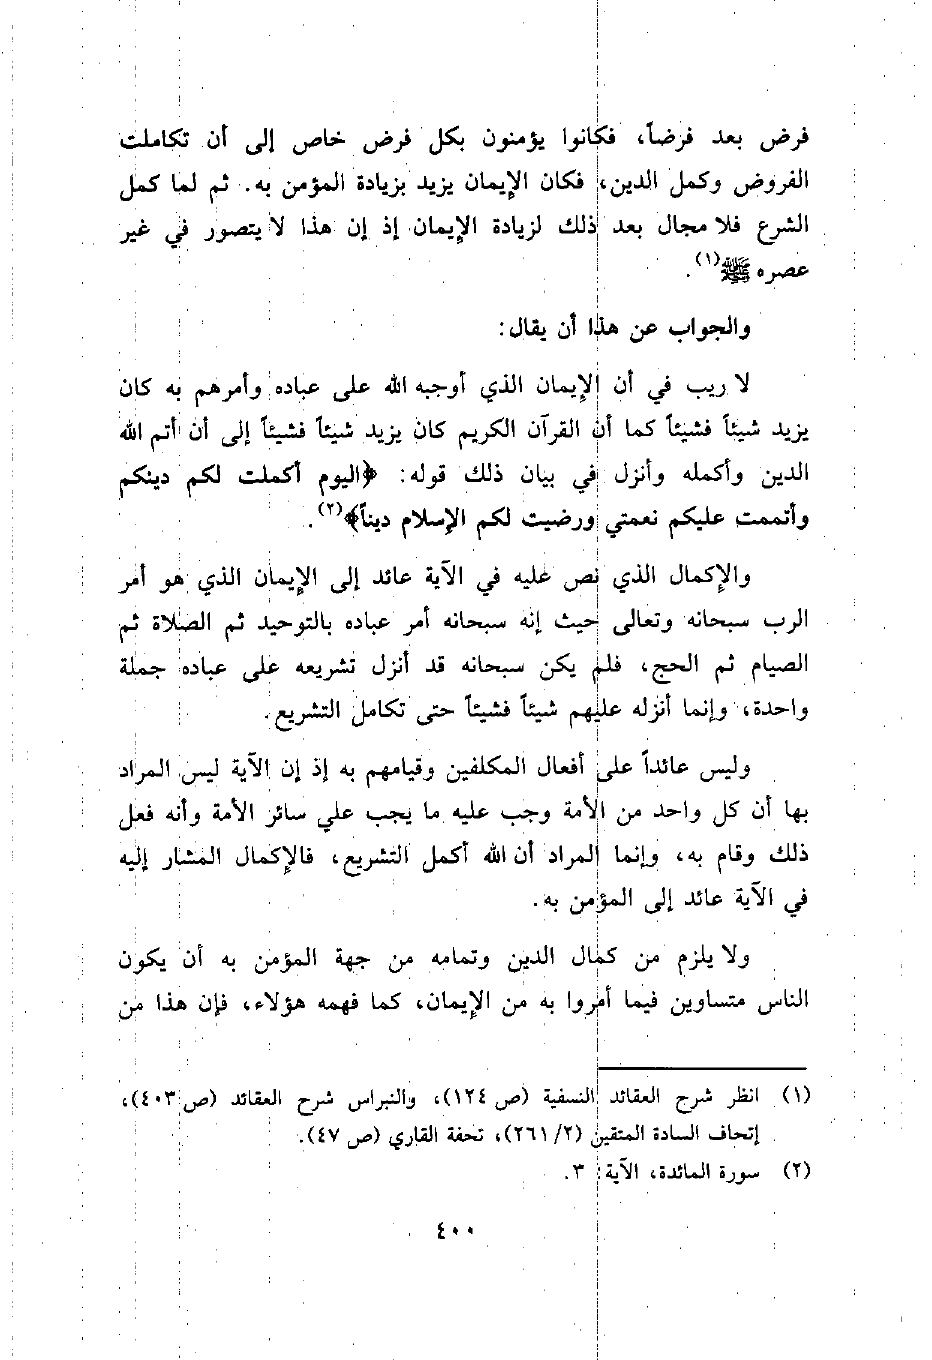 فرض بعد فرضاً، فكانوا يؤمنون بكل فرض خاص إلى أن تكاملت
الفروض وكمل الدين، فكان الإيمان يزيد بزيادة المؤمن به. ثم لما كمل
الشرع فلا مجال بعد ذلك لزيادة الإيمان إذ إن هذا لا يتصور في غير
عصره ﷺ(١).
والجواب عن هذا أن يقال:
لا ريب في أن الإيمان الذي أوجبه الله على عباده وأمرهم به كان
يزيد شيئاً فشيئاً كما أن القرآن الكريم كان يزيد شيئاً فشيئاً إلى أن أتم الله
الدين وأكمله وأنزل في بيان ذلك قوله: ﴿اليوم أكملت لكم دينكم
وأتممت عليكم نعمتي ورضيت لكم الإسلام ديناً﴾(٢).
والإكمال الذي نص عليه في الآية عائد إلى الإيمان الذي هو أمر
الرب سبحانه وتعالى حيث إنه سبحانه أمر عباده بالتوحيد ثم الصلاة ثم
الصيام ثم الحج، فلم يكن سبحانه قد أنزل تشريعه على عباده جملة
واحدة، وإنما أنزله عليهم شيئاً فشيئاً حتى تكامل التشريع.
وليس عائداً على أفعال المكلفين وقيامهم به إذ إن الآية ليس المراد
بها أن كل واحد من الأمة وجب عليه ما يجب علي سائر الأمة وأنه فعل
ذلك وقام به، وإنما المراد أن الله أكمل التشريع، فالإكمال المشار إليه
في الآية عائد إلى المؤمن به.
ولا يلزم من كمال الدين وتمامه من جهة المؤمن به أن يكون
الناس متساوين فيما أمروا به من الإيمان، كما فهمه هؤلاء، فإن هذا من
(١) انظر شرح العقائد النسفية (ص ١٢٤)، والنبراس شرح العقائد (ص ٤٠٣)،
إتحاف السادة المتقين (٢/ ٢٦١)، تحفة القاري (ص ٤٧).
(٢) سورة المائدة، الآية: ٣.
٤٠٠